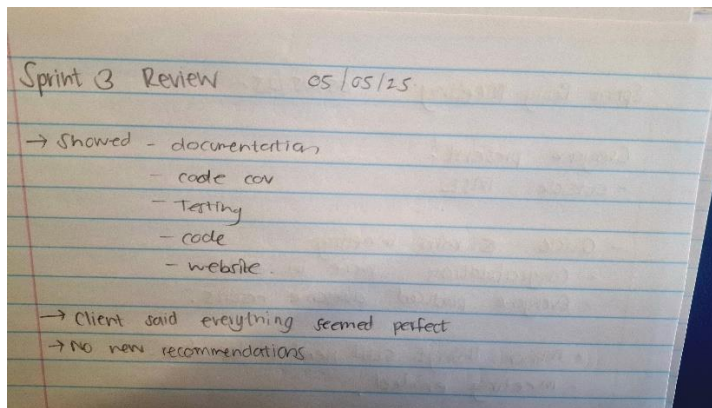 Sprint 3 Review 05/05/25
→ Showed - documentation
- code cov
- Testing
- code
- website.
→ Client said everything seemed perfect
→ No new recommendations